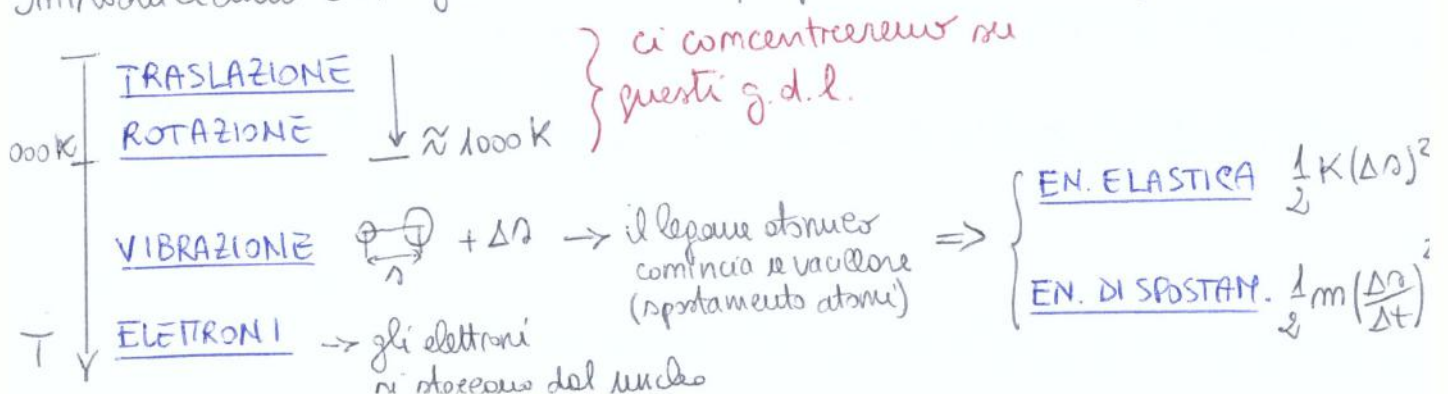 TRASLAZIONE
ROTAZIONE
≈ 1000 K
ci concentreremo su
questi g.d.l.
000 K
VIBRAZIONE
s
+ Δs → il legame atomico
comincia a vacillare
(spostamento atomi)
=>
EN. ELASTICA 1/2 K(Δs)²
EN. DI SPOSTAM. 1/2 m(Δs/Δt)²
T
ELETTRONI → gli elettroni
si staccano dal nucleo